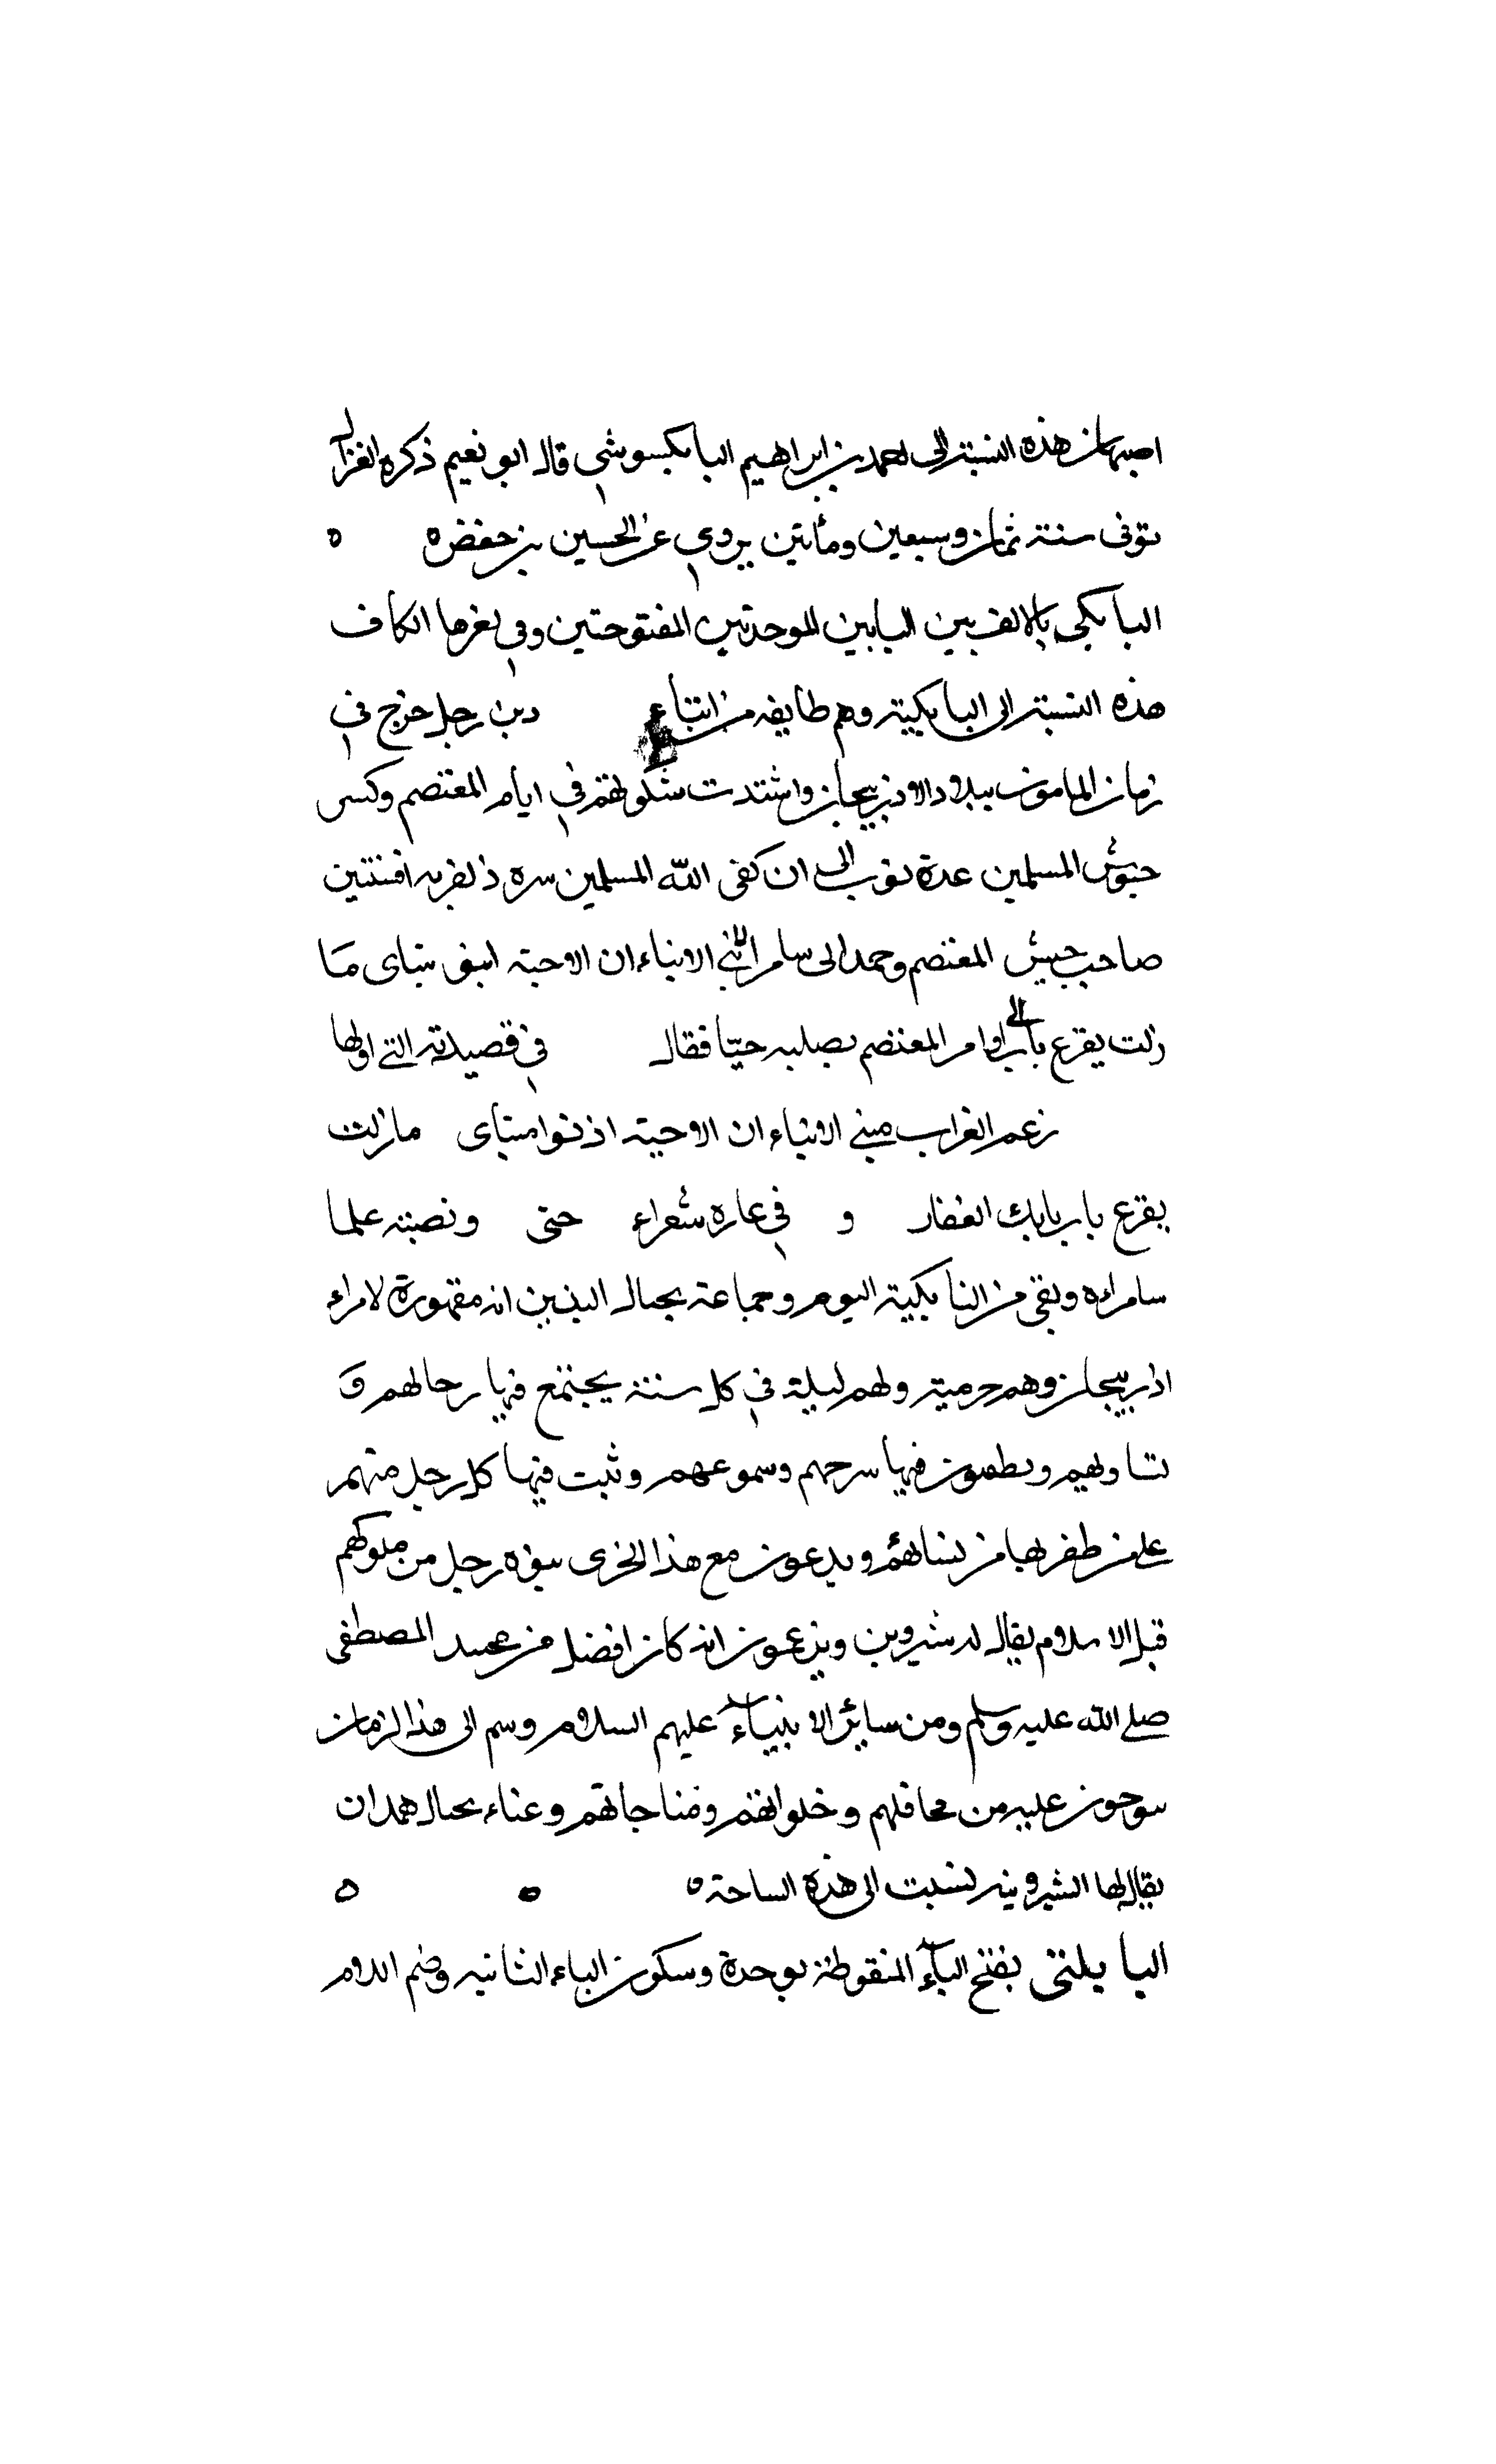 اصبهان هذه النسبة الى احمد بن ابراهيم البابكسوشى قال ابو نعيم ذكره الغزال
توفى سنة ثمان وسبعين ومأتين يروى عن الحسين بن حفص ه ه
البابكى بالالف بين البابين الموحدتين المفتوحتين وفى اخرها الكاف
هذه النسبة الى البابكية وهم طايفه من اتباع دين رجل خرج فى
زمان المامون ببلاد الاذربيجان واشتدت شكوتهم فى ايام المعتصم وكسر
جيوش المسلمين عدة نوب الى ان كفى الله المسلمين سره
صاحب جيش المعتصم وحمد الى سامرا الانباء ان الاحبة ما
زلت يقرع باب الى اوامر المعتصم بصلبه حيّا فقال فى قصيدته التى اولها
زعم الغراب منبى الانباء ان الاحبة اذنوا ما زلت
يقرع باب بابك الغفار و فى عاره شعراء حتى ونصبته علما
سامراء ه وبقى من البابكية اليوم وجماعة بجبال البذين انه مقهورة لامراء
اذربيجان وهم خرمية ولهم ليلة فى كل سنة يجتمع فيها رجالهم و
نساوهم ويطفون فيها سرجهم وسموعهم وثبت فيها كل رجل منهم
على من ظفر بها من نسائهم ويدعون مع هذا الخزى بنوة رجل من ملوكهم
قبل الاسلام يقال له شروين ويزعمون انه كان افضل من محمد المصطفى
صلى الله عليه وسلم ومن سائر الانبياء عليهم السلام وسم الى هذا الزمان
ينوحون عليه من محافلهم وخلواتهم ومناجاتهم وغناء بجبال همدان
يقال لها الشروينه نسبت الى هذه الساحة ه ه ه
البابلتى بفتح الباء المنقوطة بوحدة وسكون الباء الثانيه وضم اللام